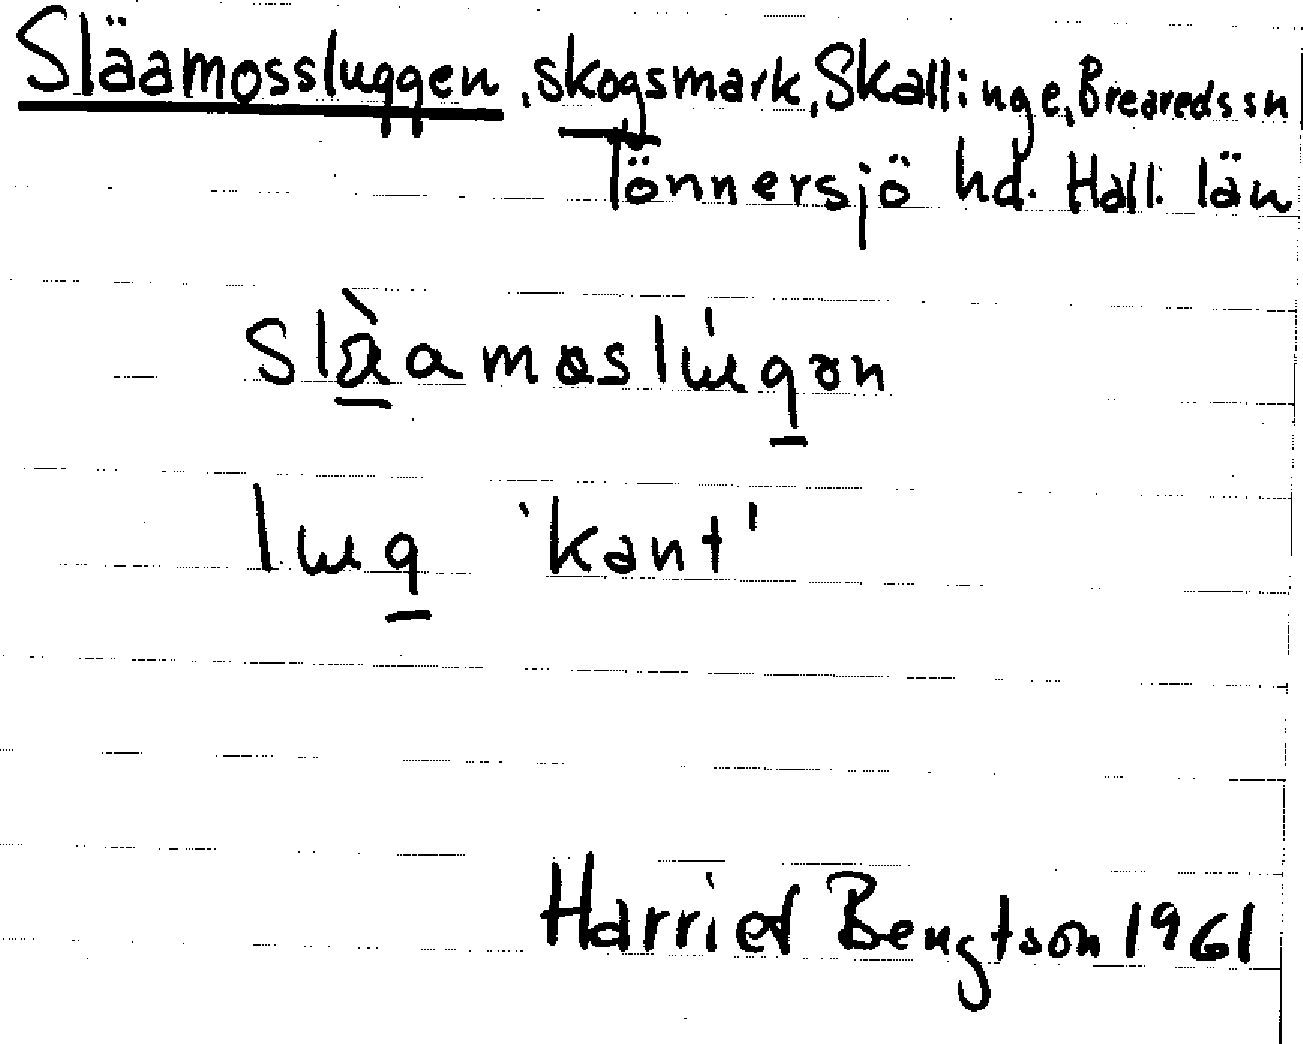 Släamossluggen, skogsmark, Skallinge, Breareds sn
Tönnersjö hd. Hall. län
'kant'
Harriet Bengtson 1961